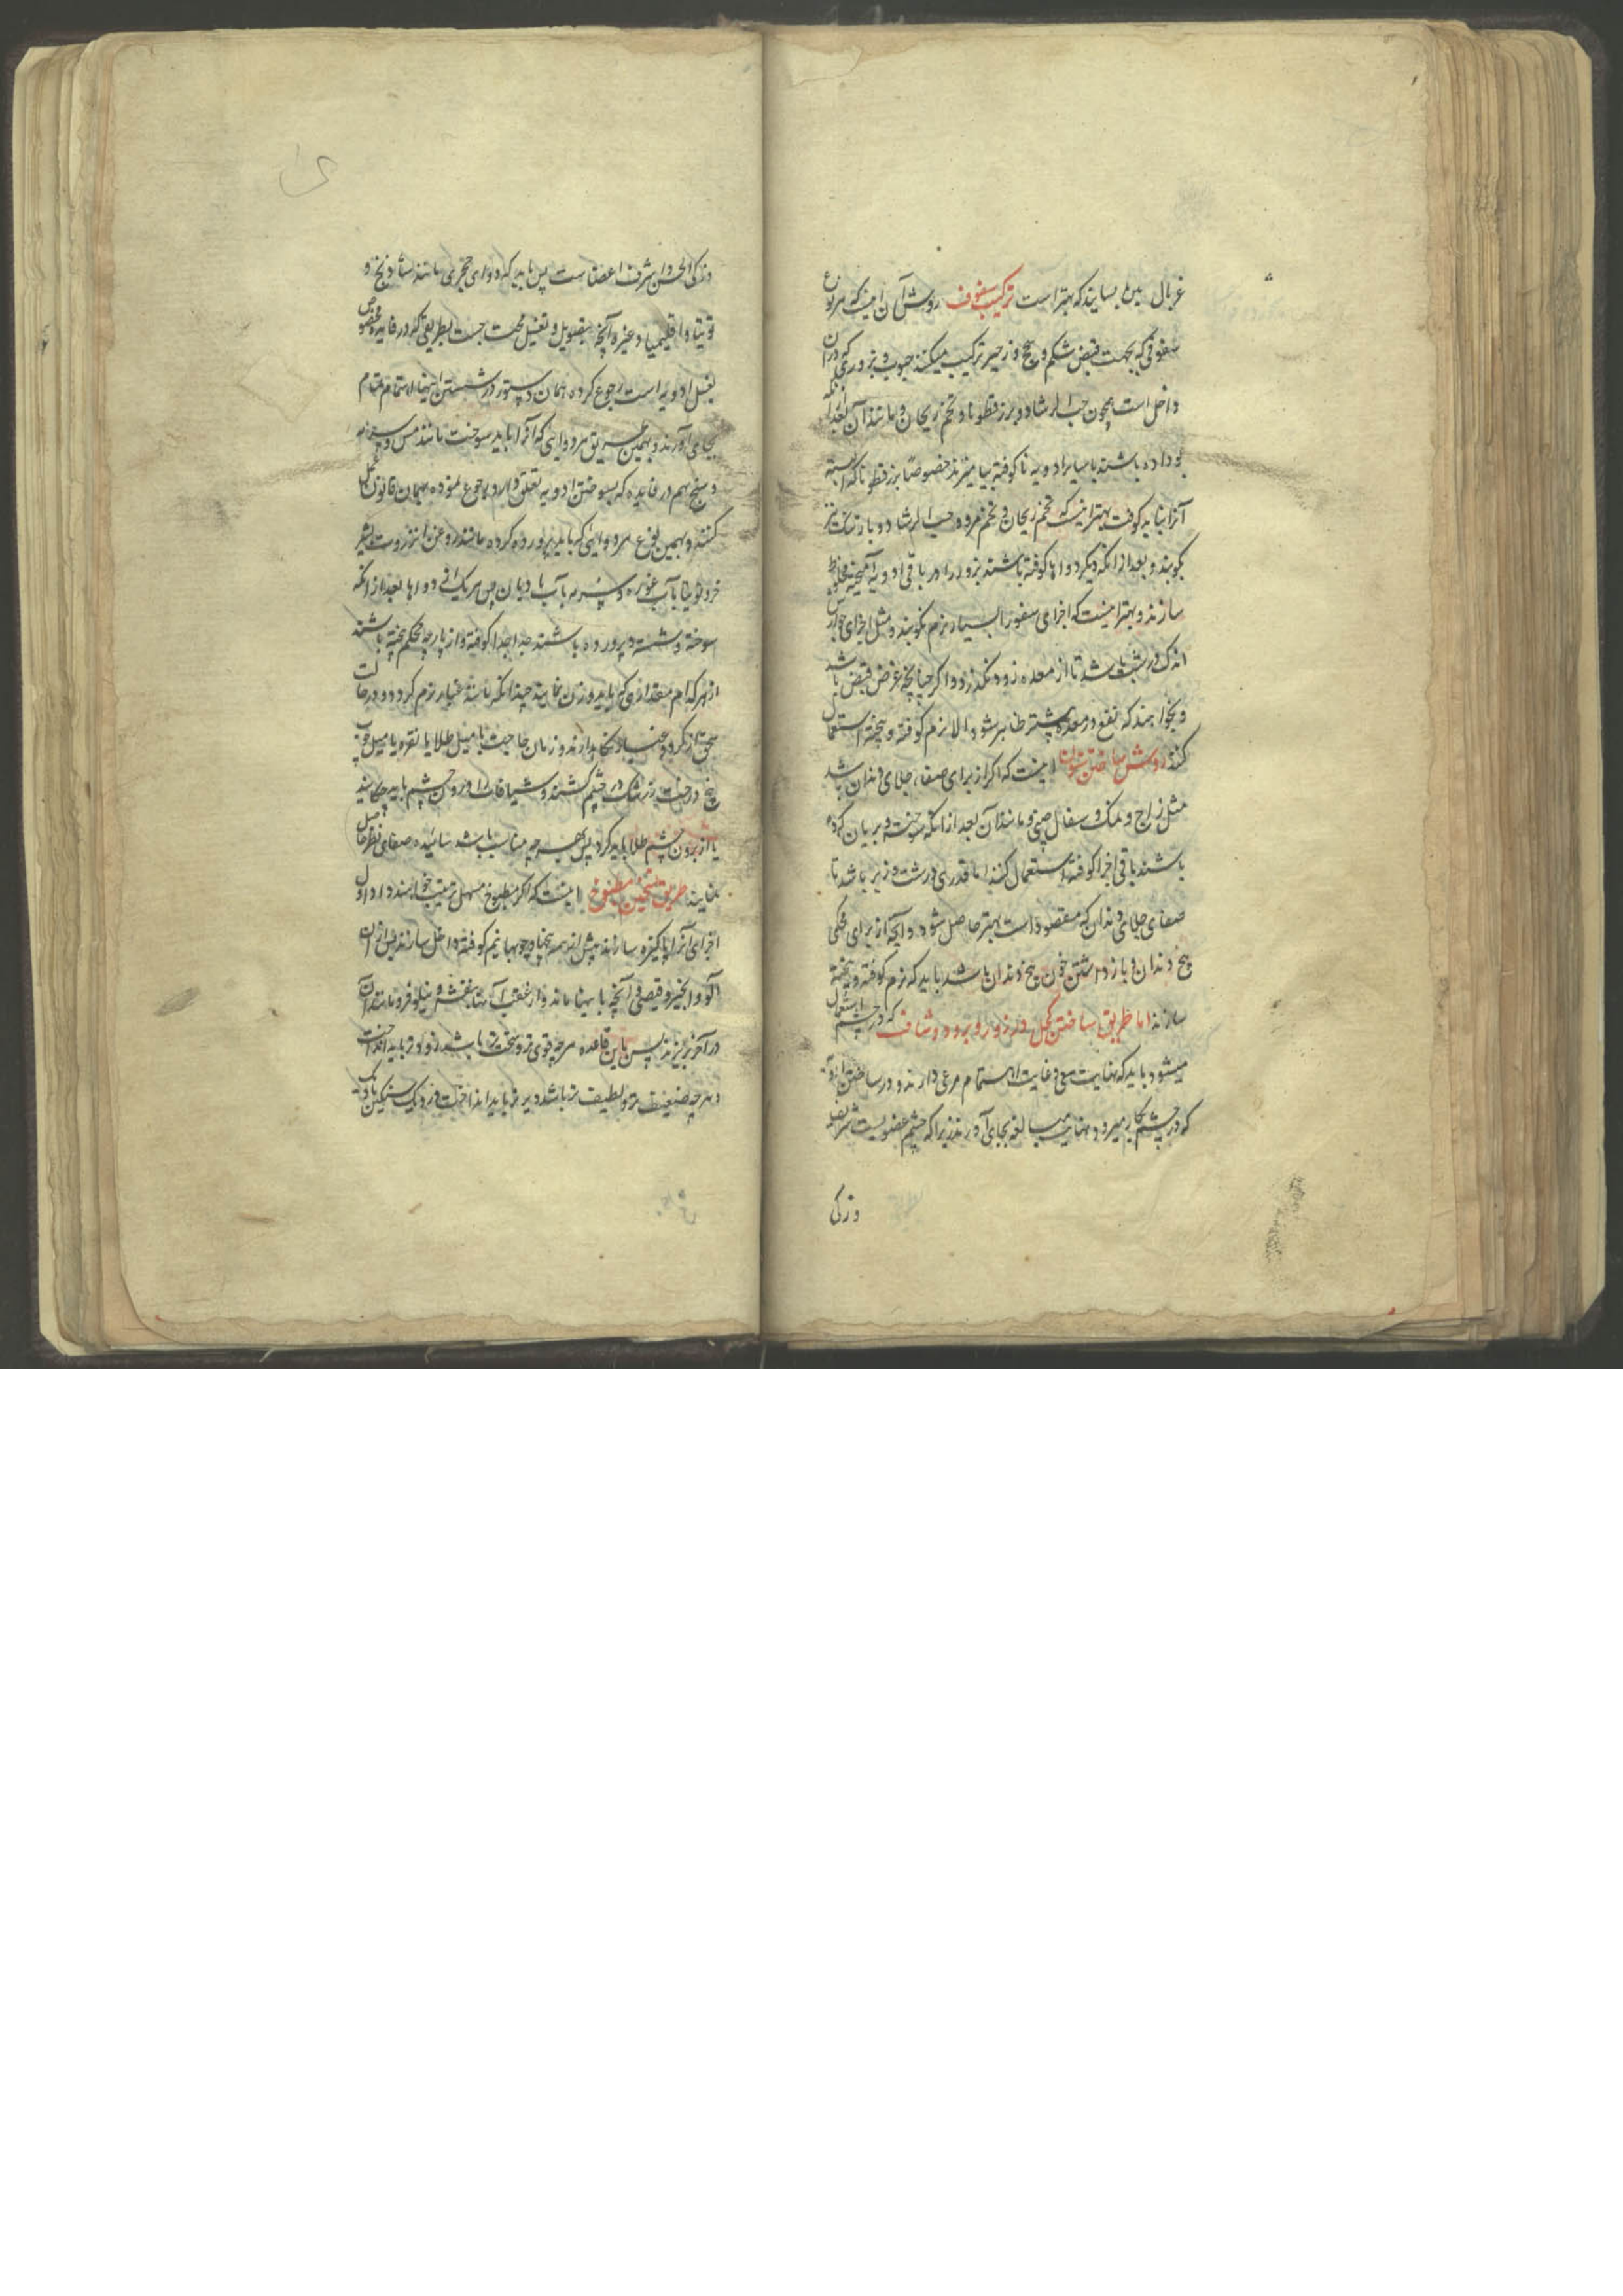 غربال بین بسایند که بهتر است ترکیب سفوف روش آن اینست که هر نوع
سفوفی که بجهت قبض شکم و سحج و زحیر ترکیب میکنند حبوب و بزوری که در آن
داخل است همچون حب الرشاد و بزرقطونا و تخم ریحان و مانند آن بعد از آنکه
بو داده باشند با سایر ادویه ناکوفته بیامیزند خصوصا بزرقطونا که البته
آنرا نباید کوفت بهتر اینست که تخم ریحان و تخم مرو و حب الرشاد و بارتنگ نیز
نکوبند و بعد از آنکه دیکر دواها کوفته باشند بزور را در باقی ادویه آمیخته مخلوط
سازند و بهتر اینست که اجزای سفوف را بسیار نرم نکوبند و مثل اجزای جوارش
اندک درشت باشد تا از معده زود نگذرد و اکر چنانچه غرض قبض باشد
و بخواهند که نفع در معده بیشتر ظاهر شود و الا نرم کوفته و بیخته استعمال
کنند روش ساختن سنون اینست که اکر از برای صفا و جلای دندان باشد
مثل زاج و نمک و سفال چینی و مانند آن بعد از آنکه سوخته و بریان کرده
باشند باقی اجزا کوفته استعمال کنند اما قدری درشت و زبر باشد تا
صفای جلای دندان که مقصود است بهتر حاصل شود و آنچه از برای محکمی
بیخ دندان و باز داشتن خون بیخ دندان باشد باید که نرم کوفته و بیخته
سازند اما طریق ساختن کحل و ذرور و برود و شیاف که در چشم استعمال
میشود باید که نهایت سعی و غایت اهتمام مرعی دارند و در ساختن ادویه
که در چشم بکار میرود نهایت مبالغه بجای آورند زیرا که چشم عضویست شریف
و زکی
و زکی الحس و اشرف اعضاست پس باید که دوای حجری مانند شادنج و
توتیا و اقلیمیا و غیره آنچه بتقویل و تغسیل محتاجست بطریقی که در فایده مخصوص
بغسل ادویه است رجوع کرده بهمان دستور در شستن اینها اهتمام تمام
بجای آورند و بهمین طریق هر دوایی که آنرا باید سوخت مانند مس و سرمه
و سنج هم در فایده که بسوختن ادویه تعلق دارد رجوع نموده بهمان قانون عمل
کنند و بهمین نوع هر دوایی که باید پرورده کرده مانند پروردن انزروت بشیر
خر و توتیا بآب غوره و سرمه بآب بادیان پس هر یک از دواها بعد از آنکه
سوخته و شسته و پرورده باشند جدا جدا کوفته و از پارچه محکم بیخته باشند
از هر کدام مقداری که باید وزن نمایند چندانکه مانند غبار نرم کردد و در حالت
سحق از کرد و غبار نگاهدارند و زمان حاجت با میل طلا یا نقره یا میل چوب
بیخ درخت زرشک در چشم کشند و شیافات را درون چشم باید چکانید
یا از برون چشم طلا باید کرد پس بهر چه مناسب باشد سائیده صفای نظر حاصل
نمایند طریق پختن مطبوخ اینست که اکر مطبوخ مسهل ترتیب خواهند داد اول
اجزای آنرا پاکیزه سازند پیش از همه بیخها و چوبها نیم کوفته داخل سازند پس از آن
آلو و انجیر و قیصی و آنچه باینها ماند و از عقب آنها بنفشه و نیلوفر و مانند آن
در آخر بریزند پس باین قاعده هر چه قوی تر و سخت تر باشد زودتر باید انداخت
و هر چه ضعیف تر و لطیف تر باشد دیرتر باید انداخت و در دیک سنکین